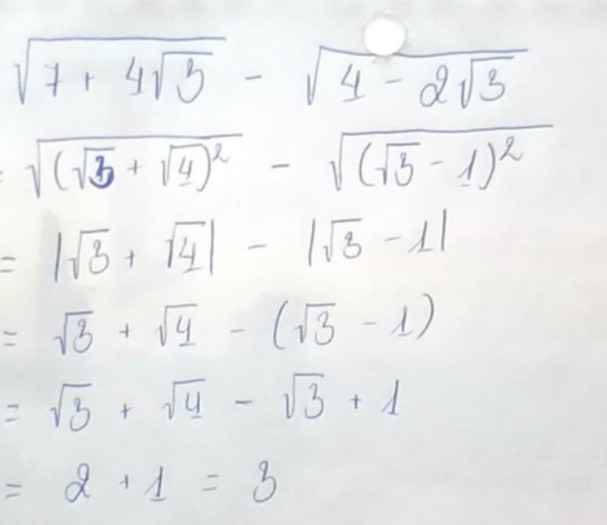 √(7 + 4√3) - √(4 - 2√3)
= √((√3 + √4)²) - √((√3 - 1)²)
= |√3 + √4| - |√3 - 1|
= √3 + √4 - (√3 - 1)
= √3 + √4 - √3 + 1
= 2 + 1 = 3